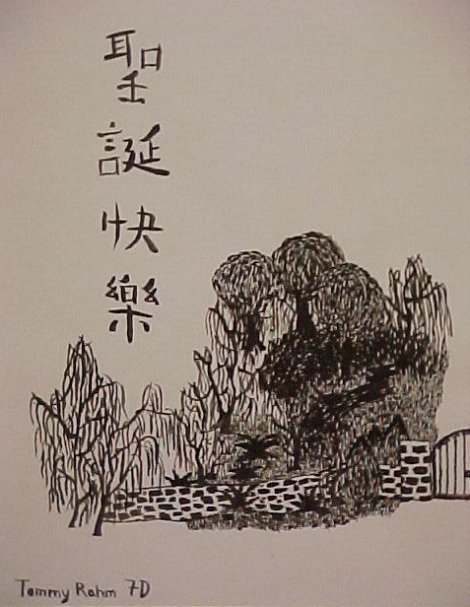 聖誕快樂
Tommy Rahm 7D